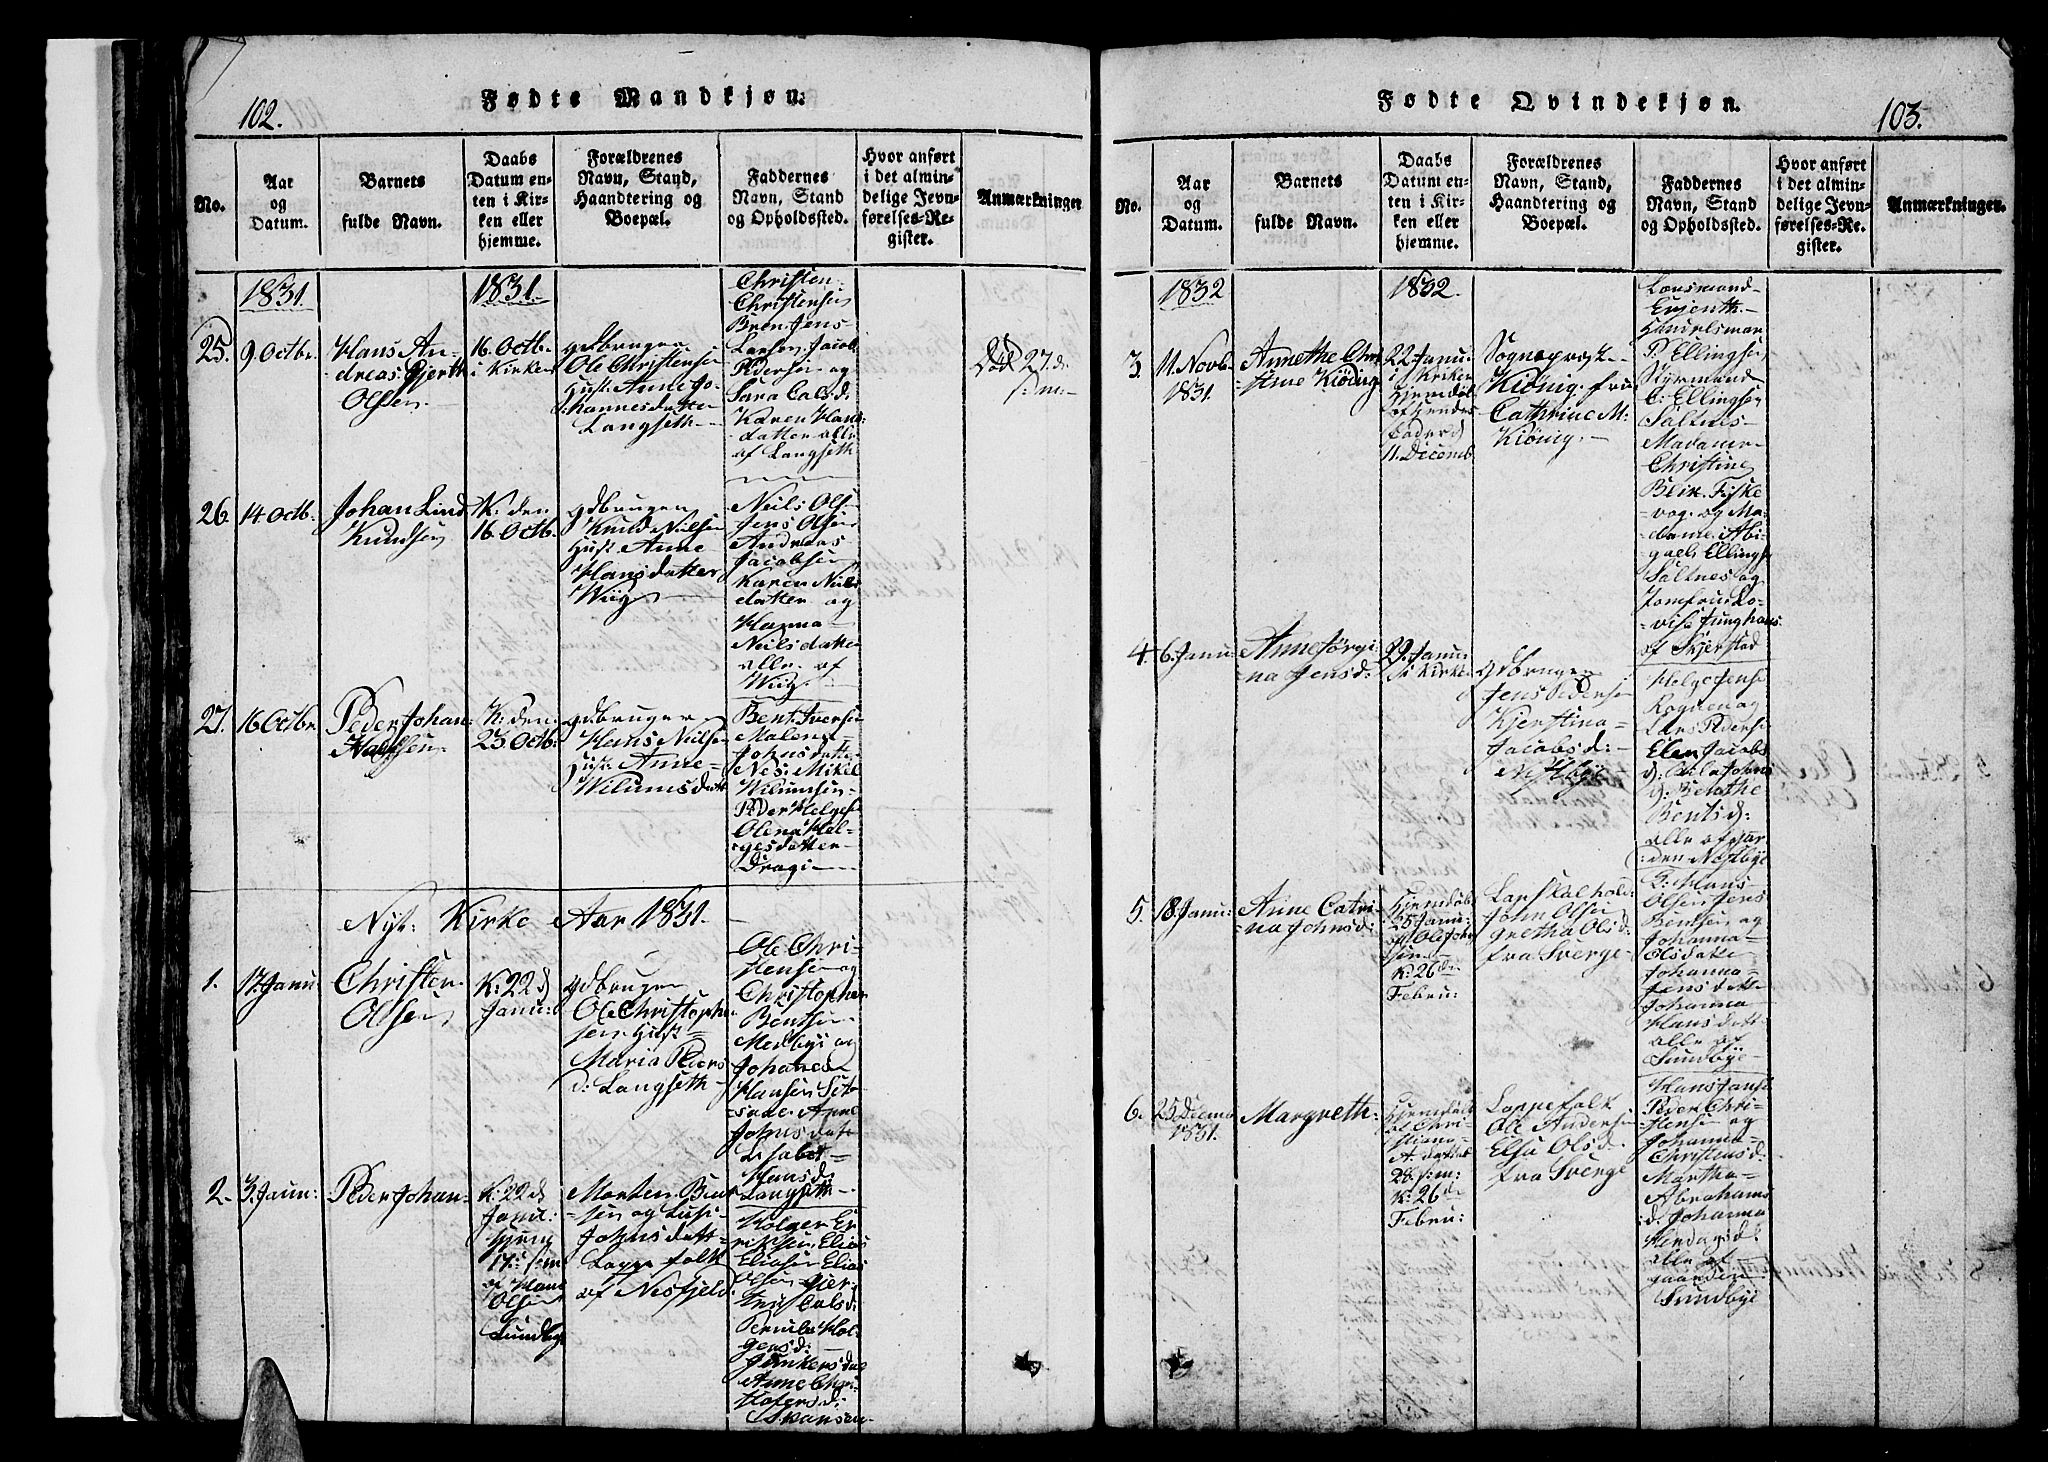 102.
Fødte Mandkjøn.
No.
Aar
og
Datum.
Barnets
fulde Navn.
Daabs
Datum en-
ten i Kir-
ken eller
hjemme.
Forældrenes
Navn, Stand,
Haandtering og
Boepæl.
Faddernes
Navn, Stand
og Opholdssted.
Hvor anført
i det almin-
delige Jevn-
førelses-Re-
gister.
Anmærkninger
1831.
1831.
25.
9 Octbr.
Hans An-
dreas Gjerth
Olsen
16 Octb.
i Kirken
gdbruger
Ole Christensen
Hust. Anne Jo-
hannesdatter
Langseth
Christen
Christensen
Bren. Jens
Larsen, Jacob
Pedersen og
Sara Calsd.
Karen Hans
datter alle
af Langseth
Død 27. d:
s: m:
26.
14 Octb.
Johan Lind
Knudsen
K: den
16 Octb.
gdbruger
Knud Nielsen
Hust. Anne
Hansdatter
Wiig
Neils Ols
Jens Olsen
Andreas
Jacobsen
Karen Niels
datter og
Hanna
Neilsdatte
alle af
Wiig
27.
16 Octbr.
Peder Johan
Hansen
K: den
23 Octb:
gdbruger
Hans Nielsen
Hust: Anne
Wilumsdatt
Bent Iversen
Malena
Johnsdatte
Nes. Mikel
Wilumsen
Peder Helgese
Olena Hel-
gesdatter
Dragi
Nyt: Kirke Aar 1831.
1.
17 Janu
Christen
Olsen
K: 22 d
Janu:
gdbruger
Ole Christophe
sen Hust
Maria Peders
d: Langseth
Ole Chri-
stensen og
Christopher
Bentsen
Medbye og
Johanes
Hansen Set-
Johnsdatt
Lisabet
Hansd.
Langseth
2.
3. Janu:
Peder Johan
K: 22 d
Janu:
17: s: m
af Hans
Olsen
Sundbye
Morten Bent
sen og Lusi
Johnsdatt
Lappefolk
af Nesfjeld
Holger Er-
iksen, Elias
Eliasen Elias
Olsen, Gjer-
trut Calsd:
Pernila Hol-
gersd:
Junkersda
Anne Chri-
stofersd:
103.
Fødte Qvindekjøn.
No.
Aar
og
Datum.
Barnets
fulde Navn.
Daabs
Datum en-
ten i Kir-
ken eller
hjemme.
Forældrenes
Navn, Stand,
Haandtering og
Boepæl.
Faddernes
Navn, Stand
og Opholdssted.
Hvor anført
i det almin-
delige Jevn-
førelses-Re-
gister.
Anmærkninger.
1832
1832.
3.
11. Novb.
1831.
Annethe Chri
stine Kiönig
22 Janu:
i Kirken
Hjemdöb
Fader d
11. Decemb
Sogneprest
Kiönig. fru
Cathrine M:
Kiönig.
Lensmand
Handelsman
P. Ellingsen
Styrmand
C: Ellingsen
Saltnes
Madame
Christine
Blix. Fiske
vog. og Ma
dame Abi
gael Ellings
Saltnes og
Jomfru Lo-
vise Junghans
af Skjerstad
4.
6. Janu:
Anne Jörgi-
na Jensd:
29. Janu:
i Kirke
gdbruger
Jens Pedersen
Kjerstina
Jacobsd:
Nestbye
Helge Jense
Rognen og
Lars Pederse
Elen Jacobs
d: Cicila Johns
d: Berethe
Bentsd:
alle af gaar
den Nestbye
5.
18. Janu:
Anne Catri-
na Johnsd:
Hjemdöb
25 Janu:
af Ole John
sen
K: 26 d:
Febru:
Lapsk
John Olsen
gretha Olsd:
fra Sverge
Hans
Olsen Jens
Bentsen og
Johanna
Olsdatte
Johanna
Jensdatte
Johanna
Hansdatt
alle af
Sundbye
6.
25 Decmb
1831.
Margreth:
Hjemdöbt
af Chri-
stiana
A. datter
28. s: m:
K: 26 d:
Febru:
Lappefolk
Ole Andersen
Elsa Olsd.
fra Sverge
Hans Janse
Peder Chri-
stensen og
Johanna
Christensd:
Martha
Abrahams
d. Johanna
Herdagsd.
alle af
gaarden
Sundbye